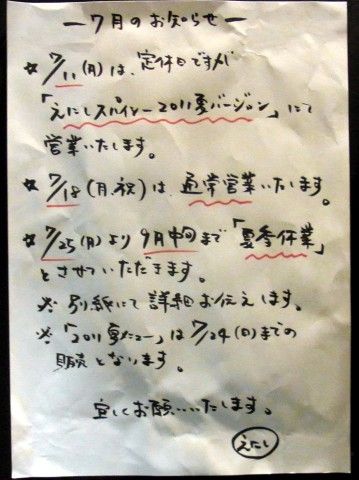 ー7月のお知らせー
☆ 7/11(月)は、定休日ですが
「えにしスパイシー2011夏バージョン」にて
営業いたします。
☆ 7/18(月、祝)は、通常営業いたします。
☆ 7/25(月)より9月中旬まで「夏季休業」
とさせていただきます。
※ 別紙にて詳細お伝えします。
※「2011夏メニュー」は7/24(日)までの
販売となります。
宜しくお願いいたします。
えにし